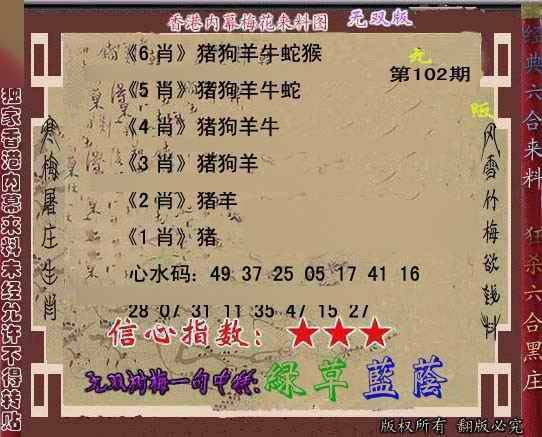 香港内幕梅花来料图 无双版
《6 肖》猪狗羊牛蛇猴
第102期
《5 肖》猪狗羊牛蛇
《4 肖》猪狗羊牛
《3 肖》猪狗羊
《2 肖》猪羊
《1 肖》猪
心水码：49 37 25 05 17 41 16
28 07 31 11 35 47 15 27
信心指数：★★★
一句中特:绿草蓝荫
独家香港内幕来料未经允许不得转贴
寒梅屠庄生肖
风雪竹梅欲钱料
经典六合来料
狂杀六合黑庄
版权所有 翻版必究